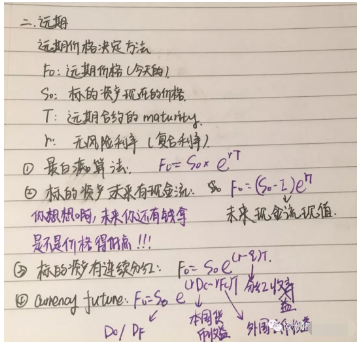 二.远期
远期价格决定方法
F₀: 远期价格(今天的)
S₀: 标的资产现在的价格
T: 远期合约的maturity.
r: 无风险利率 (复合利率)
① 最白 算法: F₀=S₀×e^rT
② 标的资产未来有现金流: F₀=(S₀-I)e^rT
你想想啊, 未来你还有钱拿
未来现金流现值.
是不是价格得 !!!
③ 标的资产有连续分红: F₀=S₀e^(r-q)T.
④ Currency future: F₀=S₀ e^(rDC-rFC)T
分红收益
Dc/DF
本国货币收益
外国